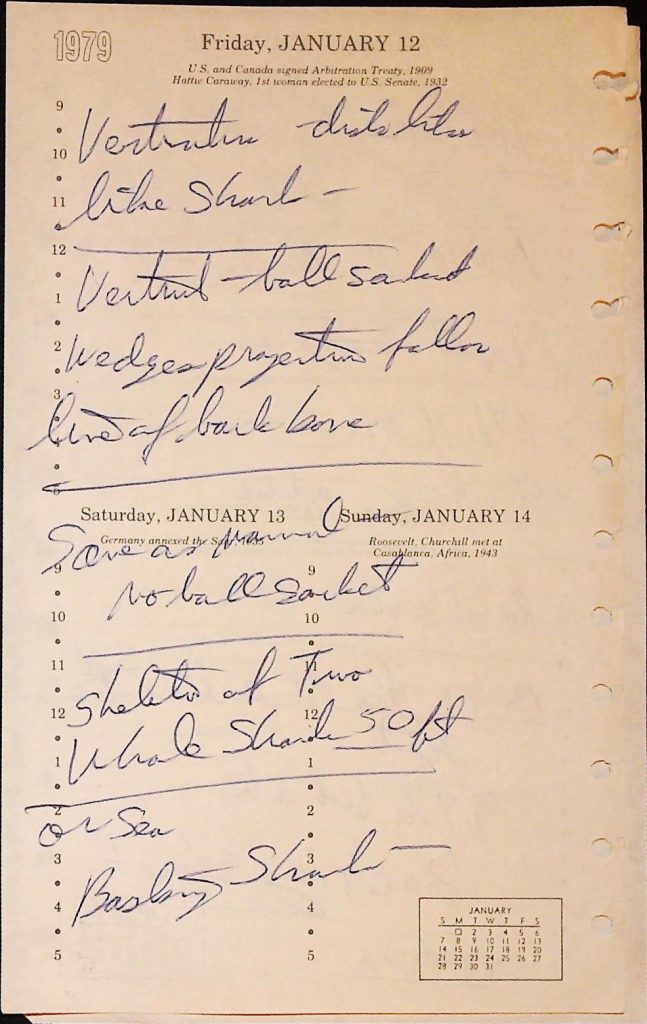 1979
Friday, JANUARY 12
U.S. and Canada signed Arbitration Treaty, 1909
Hattie Caraway, 1st woman elected to U.S. Senate, 1932
9
10
like Shark -
11
12
- ball socket
1
Wedges follow
2
3
line of back bone
5
Saturday, JANUARY 13
Germany annexed the Saar, 1935
Same as mammal
9
no ball socket
10
11
Skeleton of Two
12
Whale Shark 50 ft
1
2
or Sea
3
Basking Shark -
4
5
Sunday, JANUARY 14
Roosevelt, Churchill met at
Casablanca, Africa, 1943
9
10
11
12
1
2
3
4
5
JANUARY
S M T W T F S
1 2 3 4 5 6
7 8 9 10 11 12 13
14 15 16 17 18 19 20
21 22 23 24 25 26 27
28 29 30 31